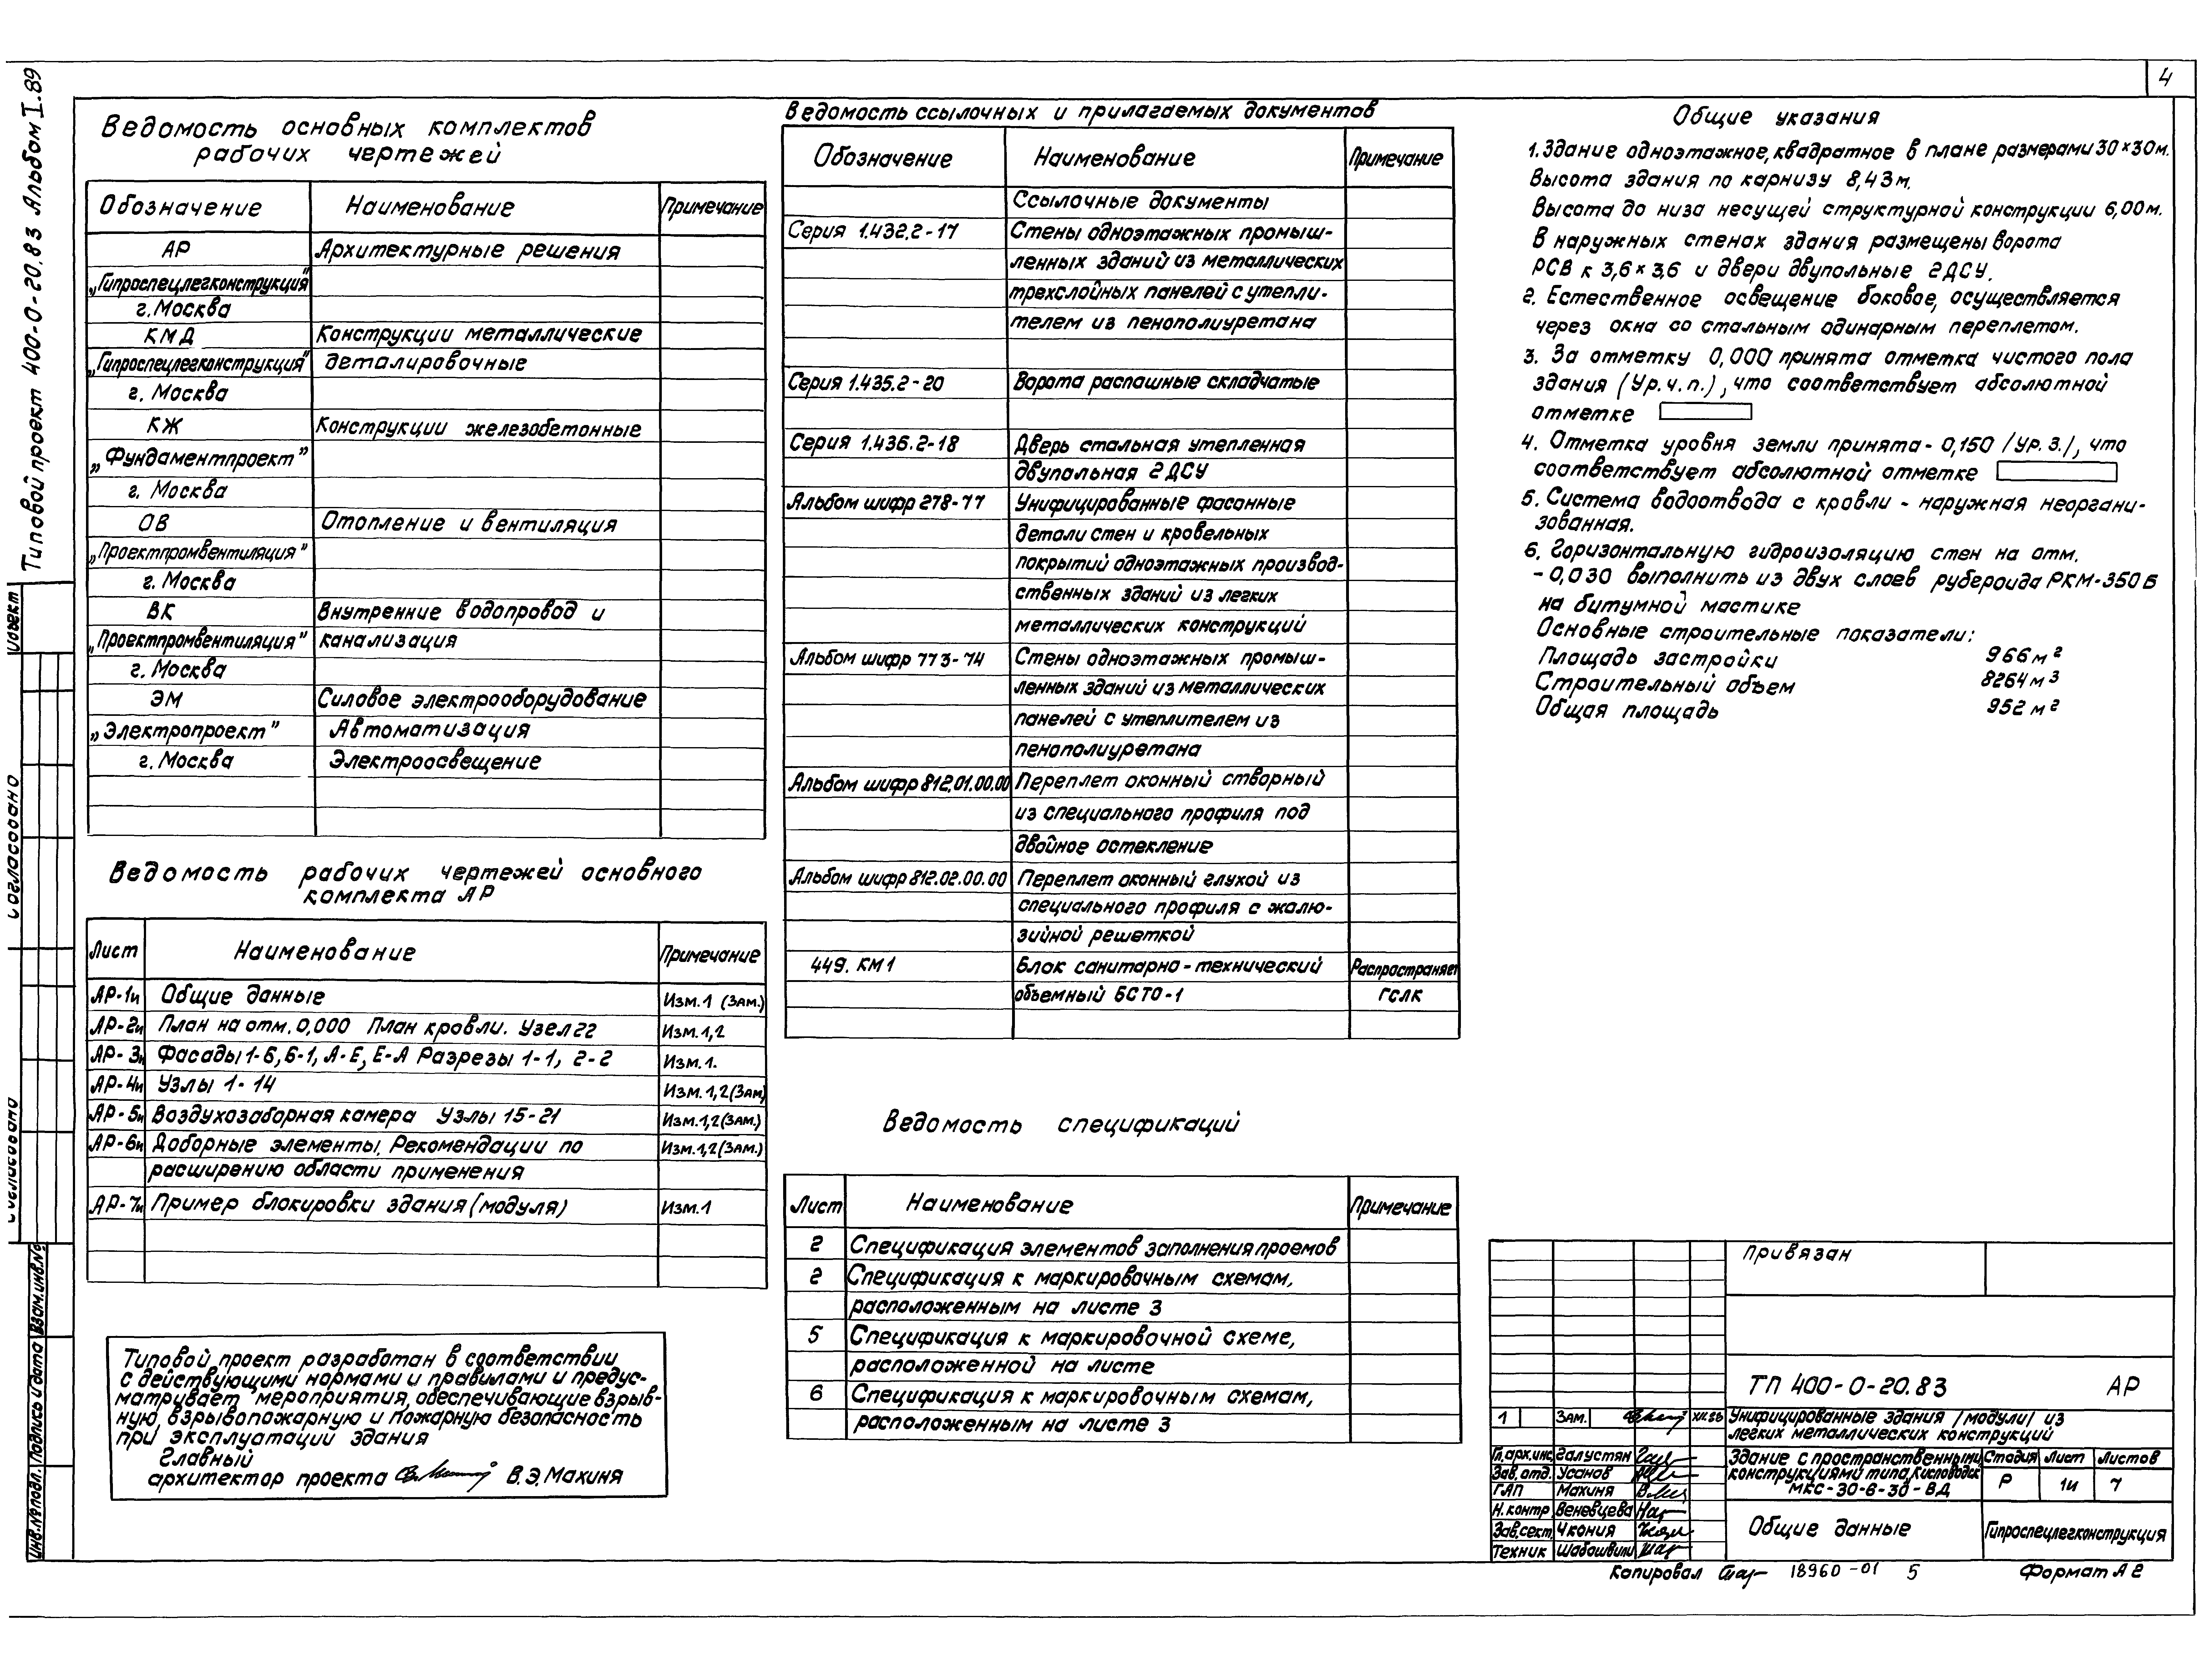 4
Типовой проект 400-0-20.83 Альбом I.89
Ведомость основных комплектов
рабочих чертежей
Обозначение Наименование Примечание
АР Архитектурные решения
„Гипроспецлегконструкция"
г. Москва
КМД Конструкции металлические
„Гипроспецлегконструкция" деталировочные
г. Москва
КЖ Конструкции железобетонные
„Фундаментпроект"
г. Москва
ОВ Отопление и вентиляция
„Проектпромвентиляция"
г. Москва
ВК Внутренние водопровод и
„Проектпромвентиляция" канализация
г. Москва
ЭМ Силовое электрооборудование
„Электропроект" Автоматизация
г. Москва Электроосвещение
Ведомость рабочих чертежей основного
комплекта АР
Лист Наименование Примечание
АР-1и Общие данные Изм.1 (Зам.)
АР-2и План на отм. 0,000 План кровли. Узел 22 Изм.1,2
АР-3и Фасады 1-6, 6-1, А-Е, Е-А Разрезы 1-1, 2-2 Изм.1.
АР-4и Узлы 1-14 Изм.1,2(Зам)
АР-5и Воздухозаборная камера Узлы 15-21 Изм.1,2(Зам.)
АР-6и Доборные элементы. Рекомендации по Изм.1,2(Зам.)
расширению области применения
АР-7и Пример блокировки здания (модуля) Изм.1
Типовой проект разработан в соответствии
с действующими нормами и правилами и предус-
матривает мероприятия, обеспечивающие взрыв-
ную, взрывопожарную и пожарную безопасность
при эксплуатации здания
Главный
архитектор проекта В.Э.Махиня
Ведомость ссылочных и прилагаемых документов
Обозначение Наименование Примечание
Ссылочные документы
Серия 1.432.2-17 Стены одноэтажных промыш-
ленных зданий из металлических
трехслойных панелей с утепли-
телем из пенополиуретана
Серия 1.435.2-20 Ворота распашные складчатые
Серия 1.436.2-18 Дверь стальная утепленная
двупольная 2ДСУ
Альбом шифр 278-77 Унифицированные фасонные
детали стен и кровельных
покрытий одноэтажных производ-
ственных зданий из легких
металлических конструкций
Альбом шифр 773-74 Стены одноэтажных промыш-
ленных зданий из металлических
панелей с утеплителем из
пенополиуретана
Альбом шифр 812.01.00.00 Переплет оконный створный
из специального профиля под
двойное остекление
Альбом шифр 812.02.00.00 Переплет оконный глухой из
специального профиля с жалю-
зийной решеткой
449. КМ1 Блок санитарно-технический Распространяет
объемный БСТО-1 ГСЛК
Ведомость спецификаций
Лист Наименование Примечание
2 Спецификация элементов заполнения проемов
2 Спецификация к маркировочным схемам,
расположенным на листе 3
5 Спецификация к маркировочной схеме,
расположенной на листе
6 Спецификация к маркировочным схемам,
расположенным на листе 3
Общие указания
1. Здание одноэтажное, квадратное в плане размерами 30×30м.
Высота здания по карнизу 8,43м.
Высота до низа несущей структурной конструкции 6,00м.
В наружных стенах здания размещены ворота
РСВ к 3,6×3,6 и двери двупольные 2ДСУ.
2. Естественное освещение боковое, осуществляется
через окна со стальным одинарным переплетом.
3. За отметку 0,000 принята отметка чистого пола
здания (Ур.ч.п.), что соответствует абсолютной
отметке
4. Отметка уровня земли принята - 0,150 /Ур.З./, что
соответствует абсолютной отметке
5. Система водоотвода с кровли - наружная неоргани-
зованная.
6. Горизонтальную гидроизоляцию стен на отм.
-0,030 выполнить из двух слоев рубероида РКМ-350Б
на битумной мастике
Основные строительные показатели:
Площадь застройки 966м²
Строительный объем 8264м³
Общая площадь 952м²
Привязан
ТП 400-0-20.83 АР
1 Зам. XII.86 Унифицированные здания /модули/ из
легких металлических конструкций
Гл.арх.инс. Галустян Здание с пространственными Стадия Лист Листов
Зав.отд. Усанов конструкциями типа „Кисловодск Р 1и 7
ГАП Махиня МКС-30-6-30-ВД
Н.контр. Веневцева
Зав.сект. Чкония Общие данные Гипроспецлегконструкция
Техник Шабашвили
Копировал 18960-01 5 Формат А2
Объект
Согласовано
Согласовано
Инв.№ подл. Подпись и дата Взам.инв.№